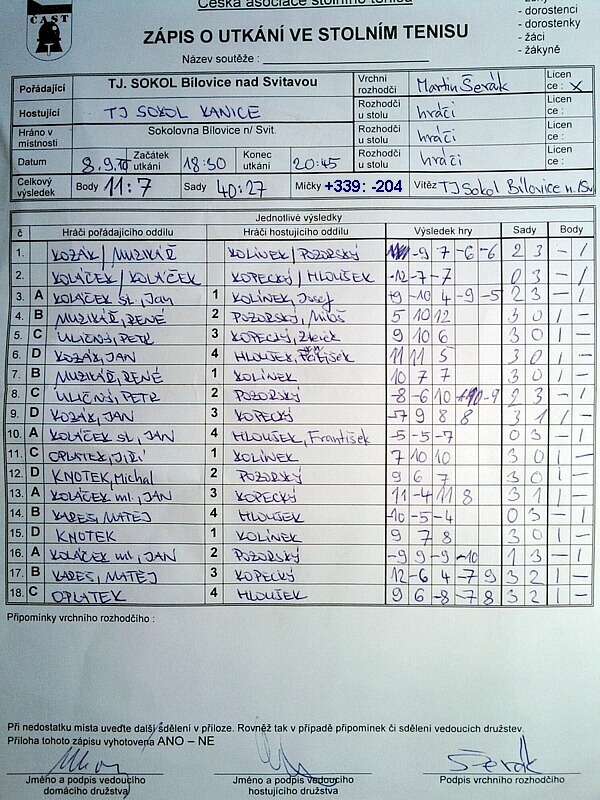 Česká asociace stolního tenisu
ČAST
- dorostenci
- dorostenky
- žáci
- žákyně
ZÁPIS O UTKÁNÍ VE STOLNÍM TENISU
Název soutěže :
Pořádající TJ. SOKOL Bílovice nad Svitavou Vrchní rozhodčí Martin Šerák Licence : x
Hostující TJ SOKOL KANICE Rozhodčí u stolu hráči Licence :
Hráno v místnosti Sokolovna Bílovice n/ Svit. Rozhodčí u stolu hráči Licence :
Datum 8.9. Začátek utkání 18:30 Konec utkání 20:45 Rozhodčí u stolu hráči Licence :
Celkový výsledek Body 11:7 Sady 40:27 Míčky +339: -204 Vítěz TJ Sokol Bílovice n./Sv.
Jednotlivé výsledky
č Hráči pořádajícího oddílu Hráči hostujícího oddílu Výsledek hry Sady Body
1. KOZÁK / MUZIKÁŘ KOLÍNEK / POZORSKÝ -9 7 -6 -6 2 3 - 1
2. KOLÁČEK / KOLÁČEK KOPECKÝ / HLOUŠEK -12 -7 -7 0 3 - 1
3. A KOLÁČEK st., Jan 1 KOLÍNEK, Josef -10 4 -9 -5 2 3 - 1
4. B MUZIKÁŘ, RENÉ 2 POZORSKÝ, Miloš 5 10 12 3 0 1 -
5. C ULIČNÝ, PETR 3 KOPECKÝ, Zdeněk 9 10 6 3 0 1 -
6. D KOZÁK, JAN 4 HLOUŠEK, František 11 11 5 3 0 1 -
7. B MUZIKÁŘ, RENÉ 1 KOLÍNEK 10 7 7 3 0 1 -
8. C ULIČNÝ, PETR 2 POZORSKÝ -8 -6 10 -9 2 3 - 1
9. D KOZÁK, JAN 3 KOPECKÝ -7 9 8 8 3 1 1 -
10. A KOLÁČEK st., JAN 4 HLOUŠEK, František -5 -5 -7 0 3 - 1
11. C OPLATEK, JIŘÍ 1 KOLÍNEK 7 10 10 3 0 1 -
12. D KNOTEK, Michal 2 POZORSKÝ 9 6 7 3 0 1 -
13. A KOLÁČEK ml., JAN 3 KOPECKÝ 11 -4 11 8 3 1 1 -
14. B KAREŠ, MATĚJ 4 HLOUŠEK -10 -5 -4 0 3 - 1
15. D KNOTEK 1 KOLÍNEK 9 7 8 3 0 1 -
16. A KOLÁČEK ml., JAN 2 POZORSKÝ -9 9 -9 -10 1 3 - 1
17. B KAREŠ, MATĚJ 3 KOPECKÝ 12 -6 4 -7 9 3 2 1 -
18. C OPLATEK 4 HLOUŠEK 9 6 -8 -7 8 3 2 1 -
Připomínky vrchního rozhodčího :
Při nedostatku místa uveďte další sdělení v příloze. Rovněž tak v případě připomínek či sdělení vedoucích družstev.
Příloha tohoto zápisu vyhotovena ANO – NE
Šerák
Jméno a podpis vedoucího domácího družstva
Jméno a podpis vedoucího hostujícího družstva
Podpis vrchního rozhodčího